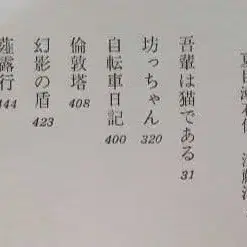 吾輩は猫である 31
坊っちゃん 320
自転車日記 400
倫敦塔 408
幻影の盾 423
薤露行 444